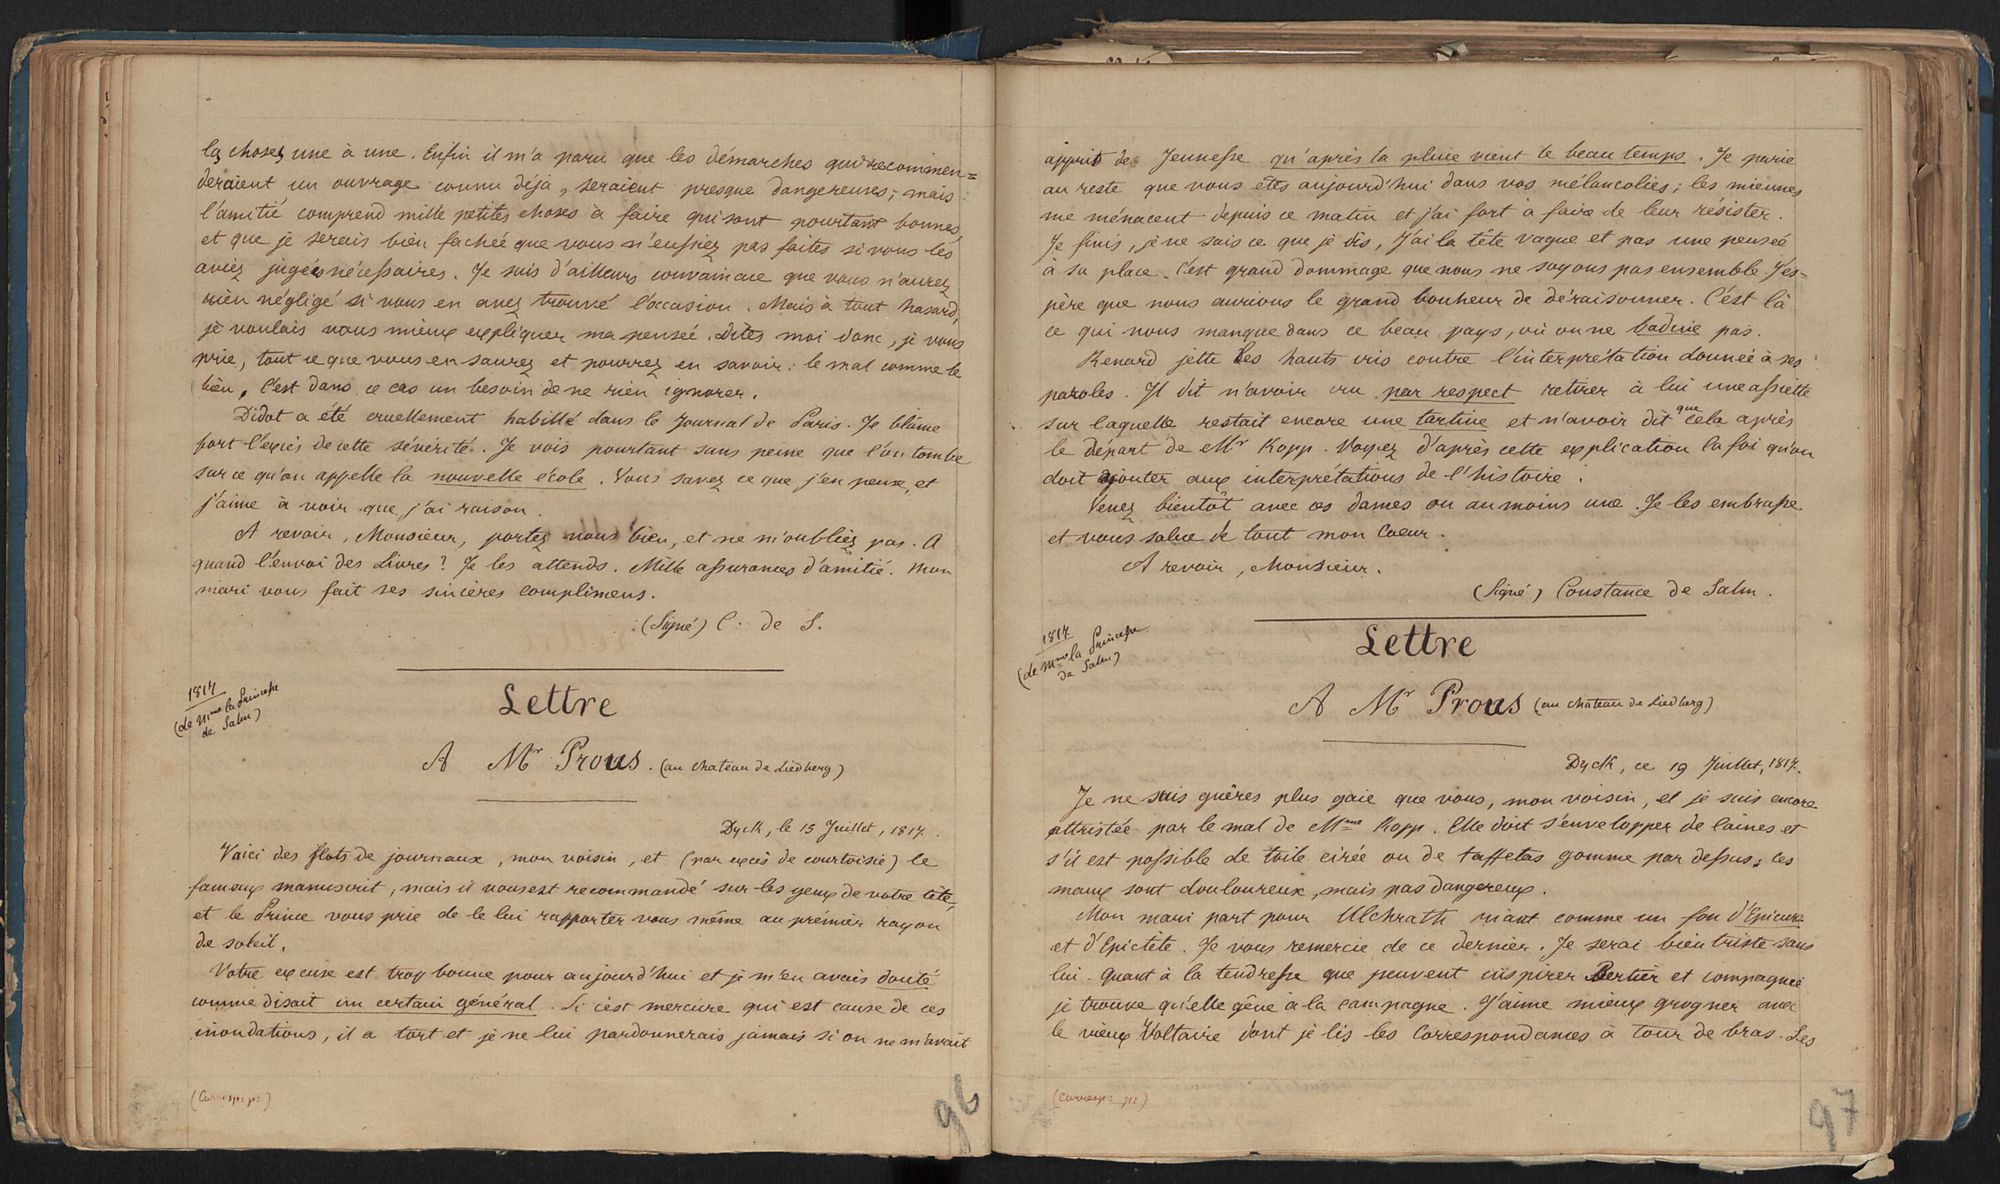 les choses une à une. Enfin il m'a paru que les démarches qui recommen=
deraient un ouvrage connu déjà, seraient presque dangereuses; mais
l'amitié comprend mille petites choses à faire qui sont pourtant bonnes,
et que je serais bien fachée que vous n'eussiez pas faites si vous les
aviez jugées nécessaires. Je suis d'ailleurs convaincue que vous n'aurez
rien négligé si vous en avez trouvé l'occasion. Mais à tout hasard,
je voulais vous mieux expliquer ma pensée. Dites moi donc, je vous
prie, tout ce que vous en saurez et pourrez en savoir: le mal comme le
bien. C'est dans ce cas un besoin de ne rien ignorer.
Didot a été cruellement habillé dans le Journal de Paris. Je blâme
fort l'excès de cette sévérité. Je vois pourtant sans peine que l'on tombe
sur ce qu'on appelle la nouvelle école. Vous savez ce que j'en pense, et
j'aime à voir que j'ai raison.
A revoir, Monsieur, portez vous bien, et ne m'oubliez pas. A
quand l'envoi des Livres? Je les attends. Mille assurances d'amitié. Mon
mari vous fait ses sincères complimens.
(Signé) C. de S.
1817
(de Mme la Princesse
de Salm)
Lettre
A Mr Prous. (au chateau de Liedberg)
Dyck, le 15 Juillet, 1817.
Voici des flots de journaux, mon voisin, et (par excès de courtoisie) le
fameux manuscrit, mais il vous est recommandé sur les yeux de votre tête,
et le Prince vous prie de le lui rapporter vous même au prémier rayon
de soleil.
Votre excuse est trop bonne pour aujourd'hui et je m'en avais douté
comme disait un certain général. Si c'est mercure qui est cause de ces
inondations, il a tort et je ne lui pardonnerais jamais si on ne m'avait
(Corresp: p:)
96
appris de Jeunesse qu'après la pluie vient le beau temps. Je parie
au reste que vous êtes aujourd'hui dans vos mélancolies; les miennes
me ménacent depuis ce matin et j'ai fort à faire de leur résister.
Je finis, je ne sais ce que je dis, J'ai la tête vague et pas une pensée
à sa place. C'est grand dommage que nous ne soyons pas ensemble. J'es=
père que nous aurions le grand bonheur de déraisonner. C'est là
ce qui nous manque dans ce beau pays, où on ne badine pas.
Renard jette les hauts cris contre l'interprétation donnée à ses
paroles. Il dit n'avoir cru par respect retirer à lui une assiette
sur laquelle restait encore une tartine et n'avoir dit que cela après
le départ de Mr Kopp. Voyez d'après cette explication la foi qu'on
doit ajouter aux interprétations de l'histoire.
Venez bientôt avec ces dames ou au moins une. Je les embrasse
et vous salue de tout mon Coeur.
A revoir, Monsieur.
(Signé) Constance de Salm.
1817
(de Mme la Princesse
de Salm)
Lettre
A Mr Prous (au chateau de Liedberg)
Dyck, ce 19 Juillet, 1817.
Je ne suis guères plus gaie que vous, mon voisin, et je suis encore
attristée par le mal de Mme Kopp. Elle doit s'envelopper de laines et
s'il est possible de toile cirée ou de taffetas gomme par dessus; ces
maux sont douloureux, mais pas dangereux.
Mon mari part pour Alchrath riant comme un fou d'Epicure
et d'Epictète. Je vous remercie de ce dernier. Je serai bien triste sans
lui. Quant à la tendresse que peuvent inspirer Bertier et compagnie
je trouve qu'elle gêne à la campagne. J'aime mieux grogner avec
le vieux Voltaire dont je lis les Correspondances à tour de bras. Les
(Corresp: p:)
97